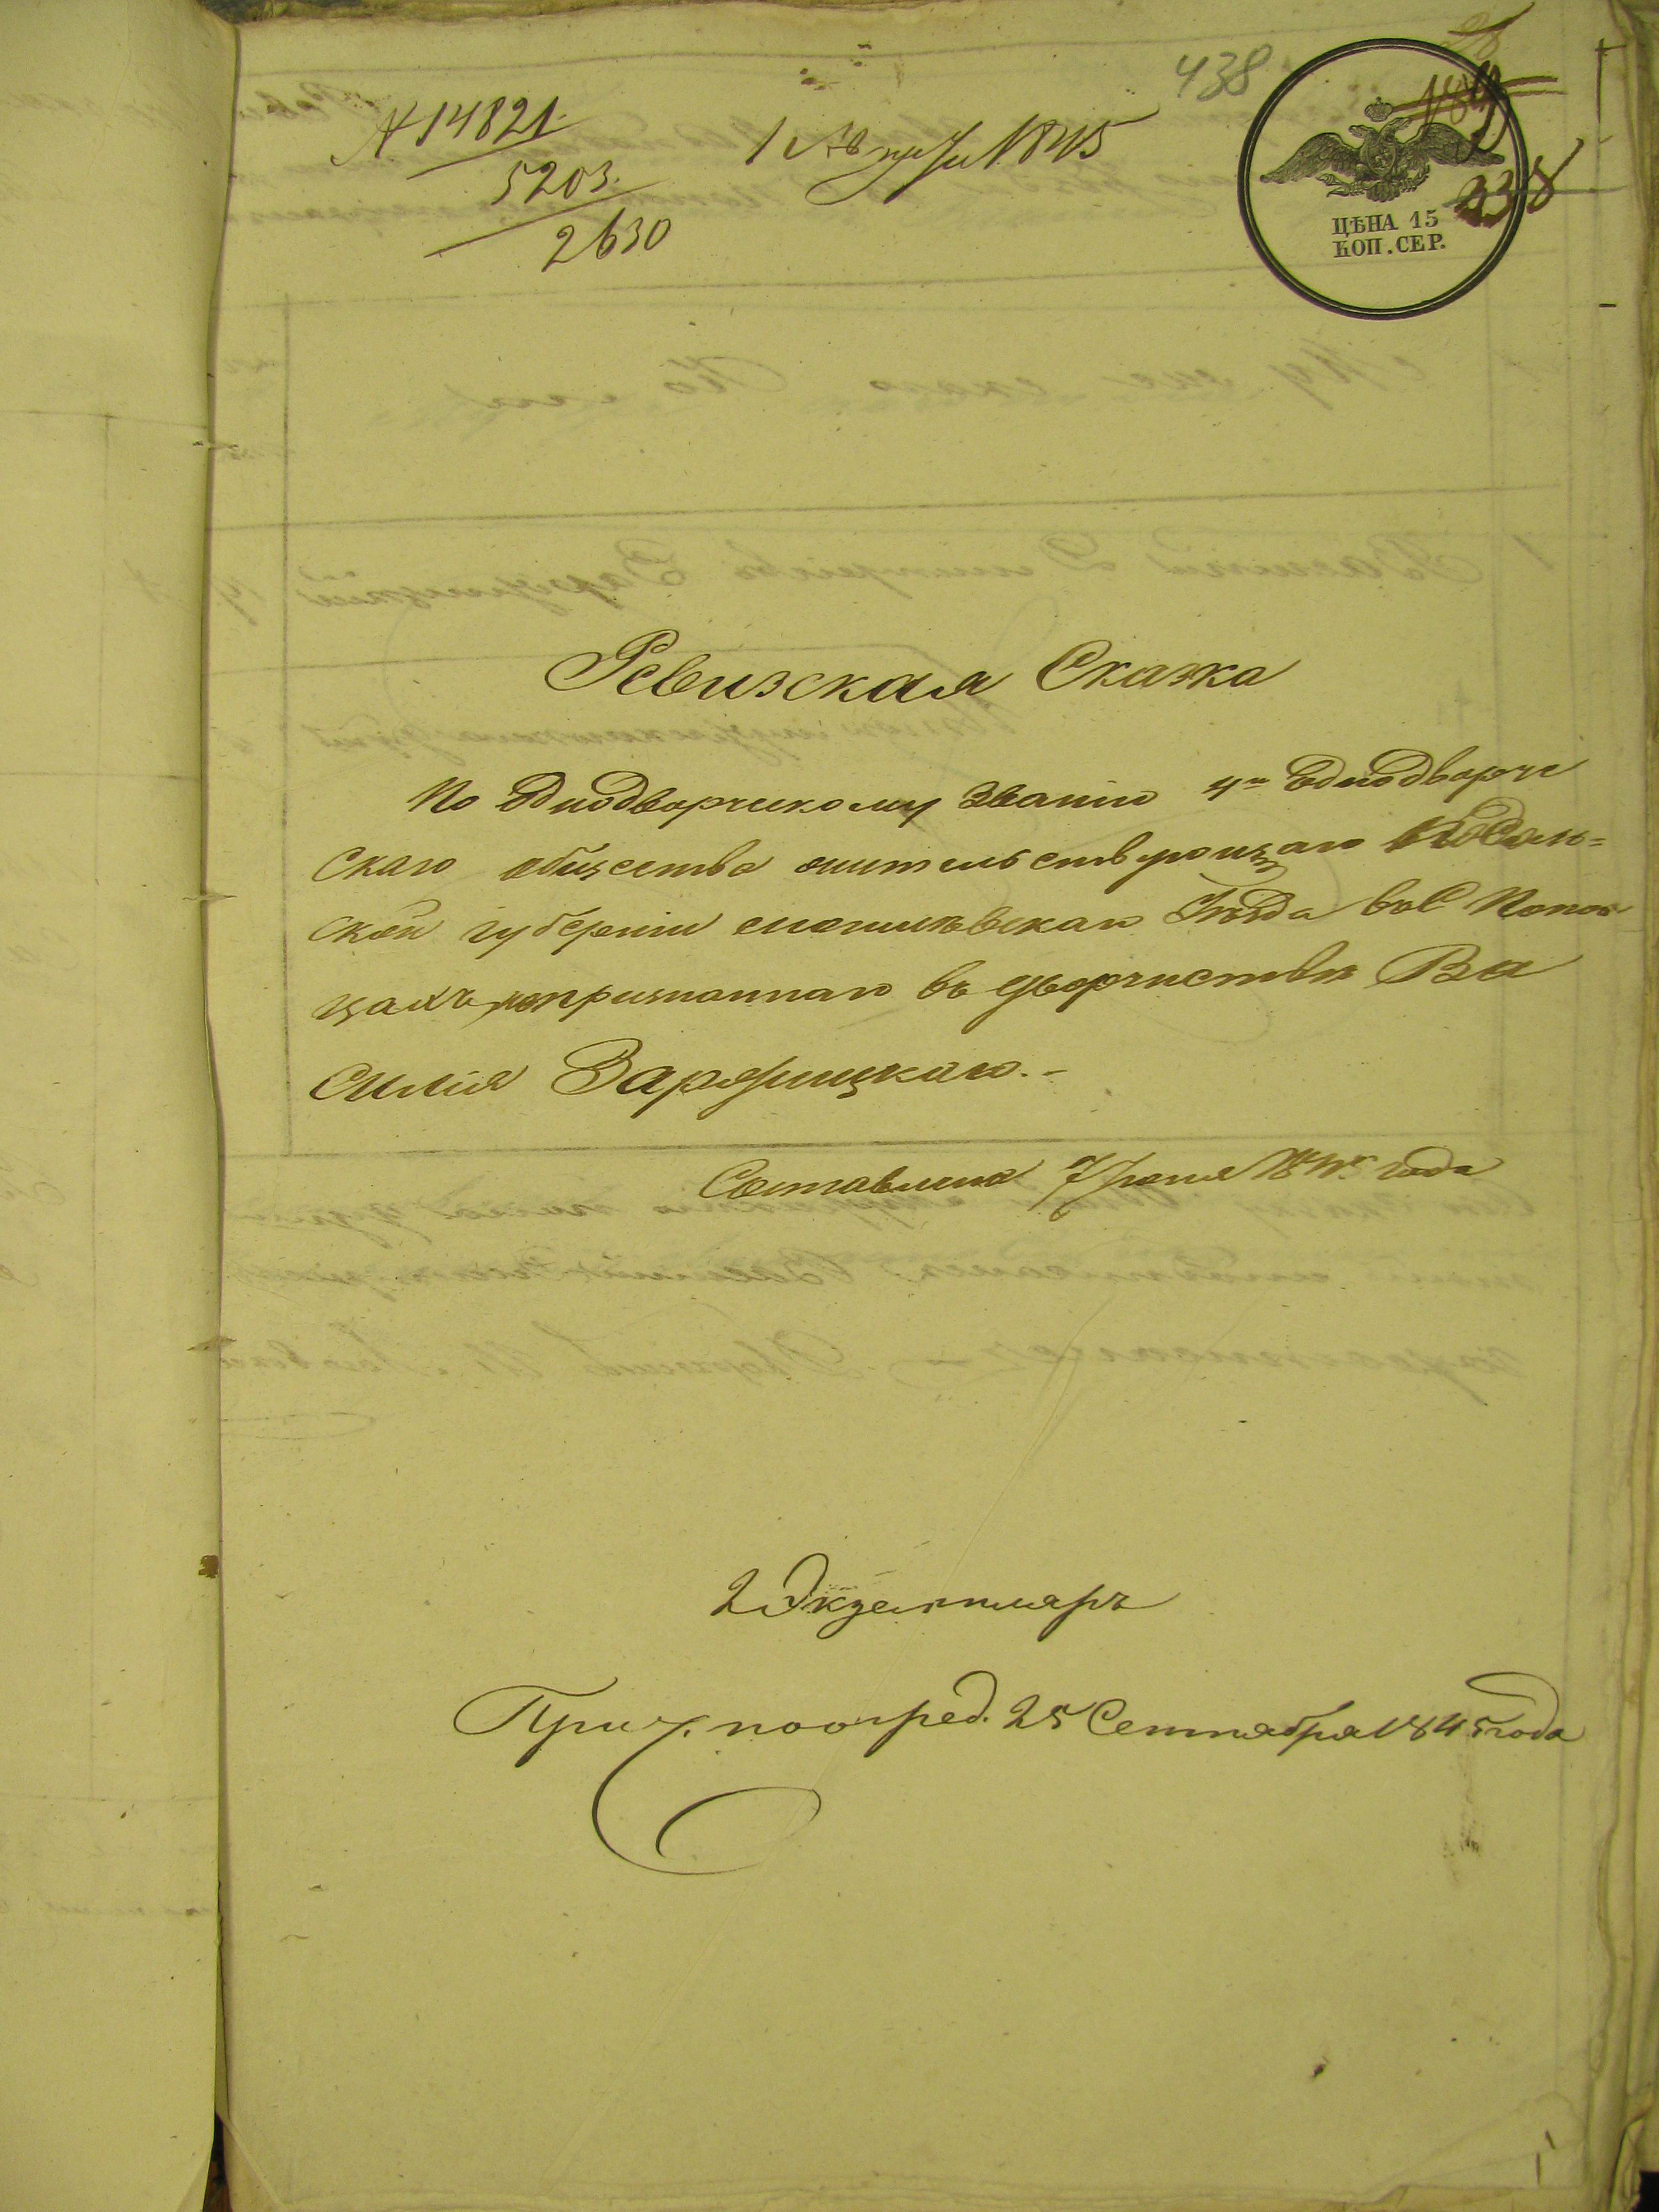 438
№ 14821.
5203.
2630
1 Августа 1845
189
338
ЦѢНА 15
КОП. СЕР.
Ревизская Сказка
По Однодворческому Званію 4го Однодворче
скаго общества жительствующаго Подоль=
ской губерніи могилевскаго Уѣзда въ С Попов
цахъ непризнаннаго въ дворянствѣ Ва
силія Заржицкаго.-
Составлена 7 Іюня года
2 Экземпляръ
Прич. по опред. 25 Сентября 1845 года